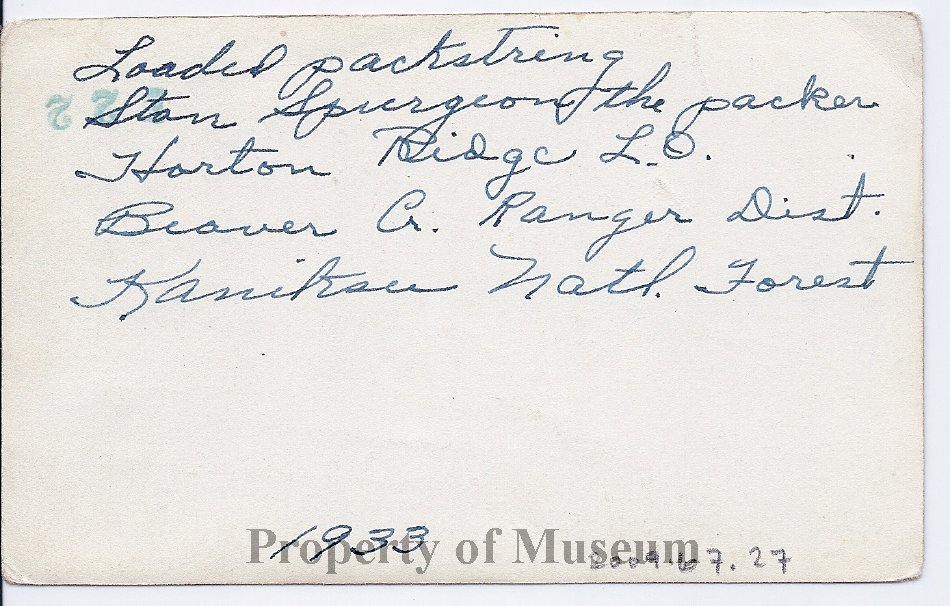 Loaded packstring
Stan Spurgeon the packer
Horton Ridge L.O.
Beaver Cr. Ranger Dist.
Kaniksu Natl. Forest
1933
Property of Museum
2009.67.27